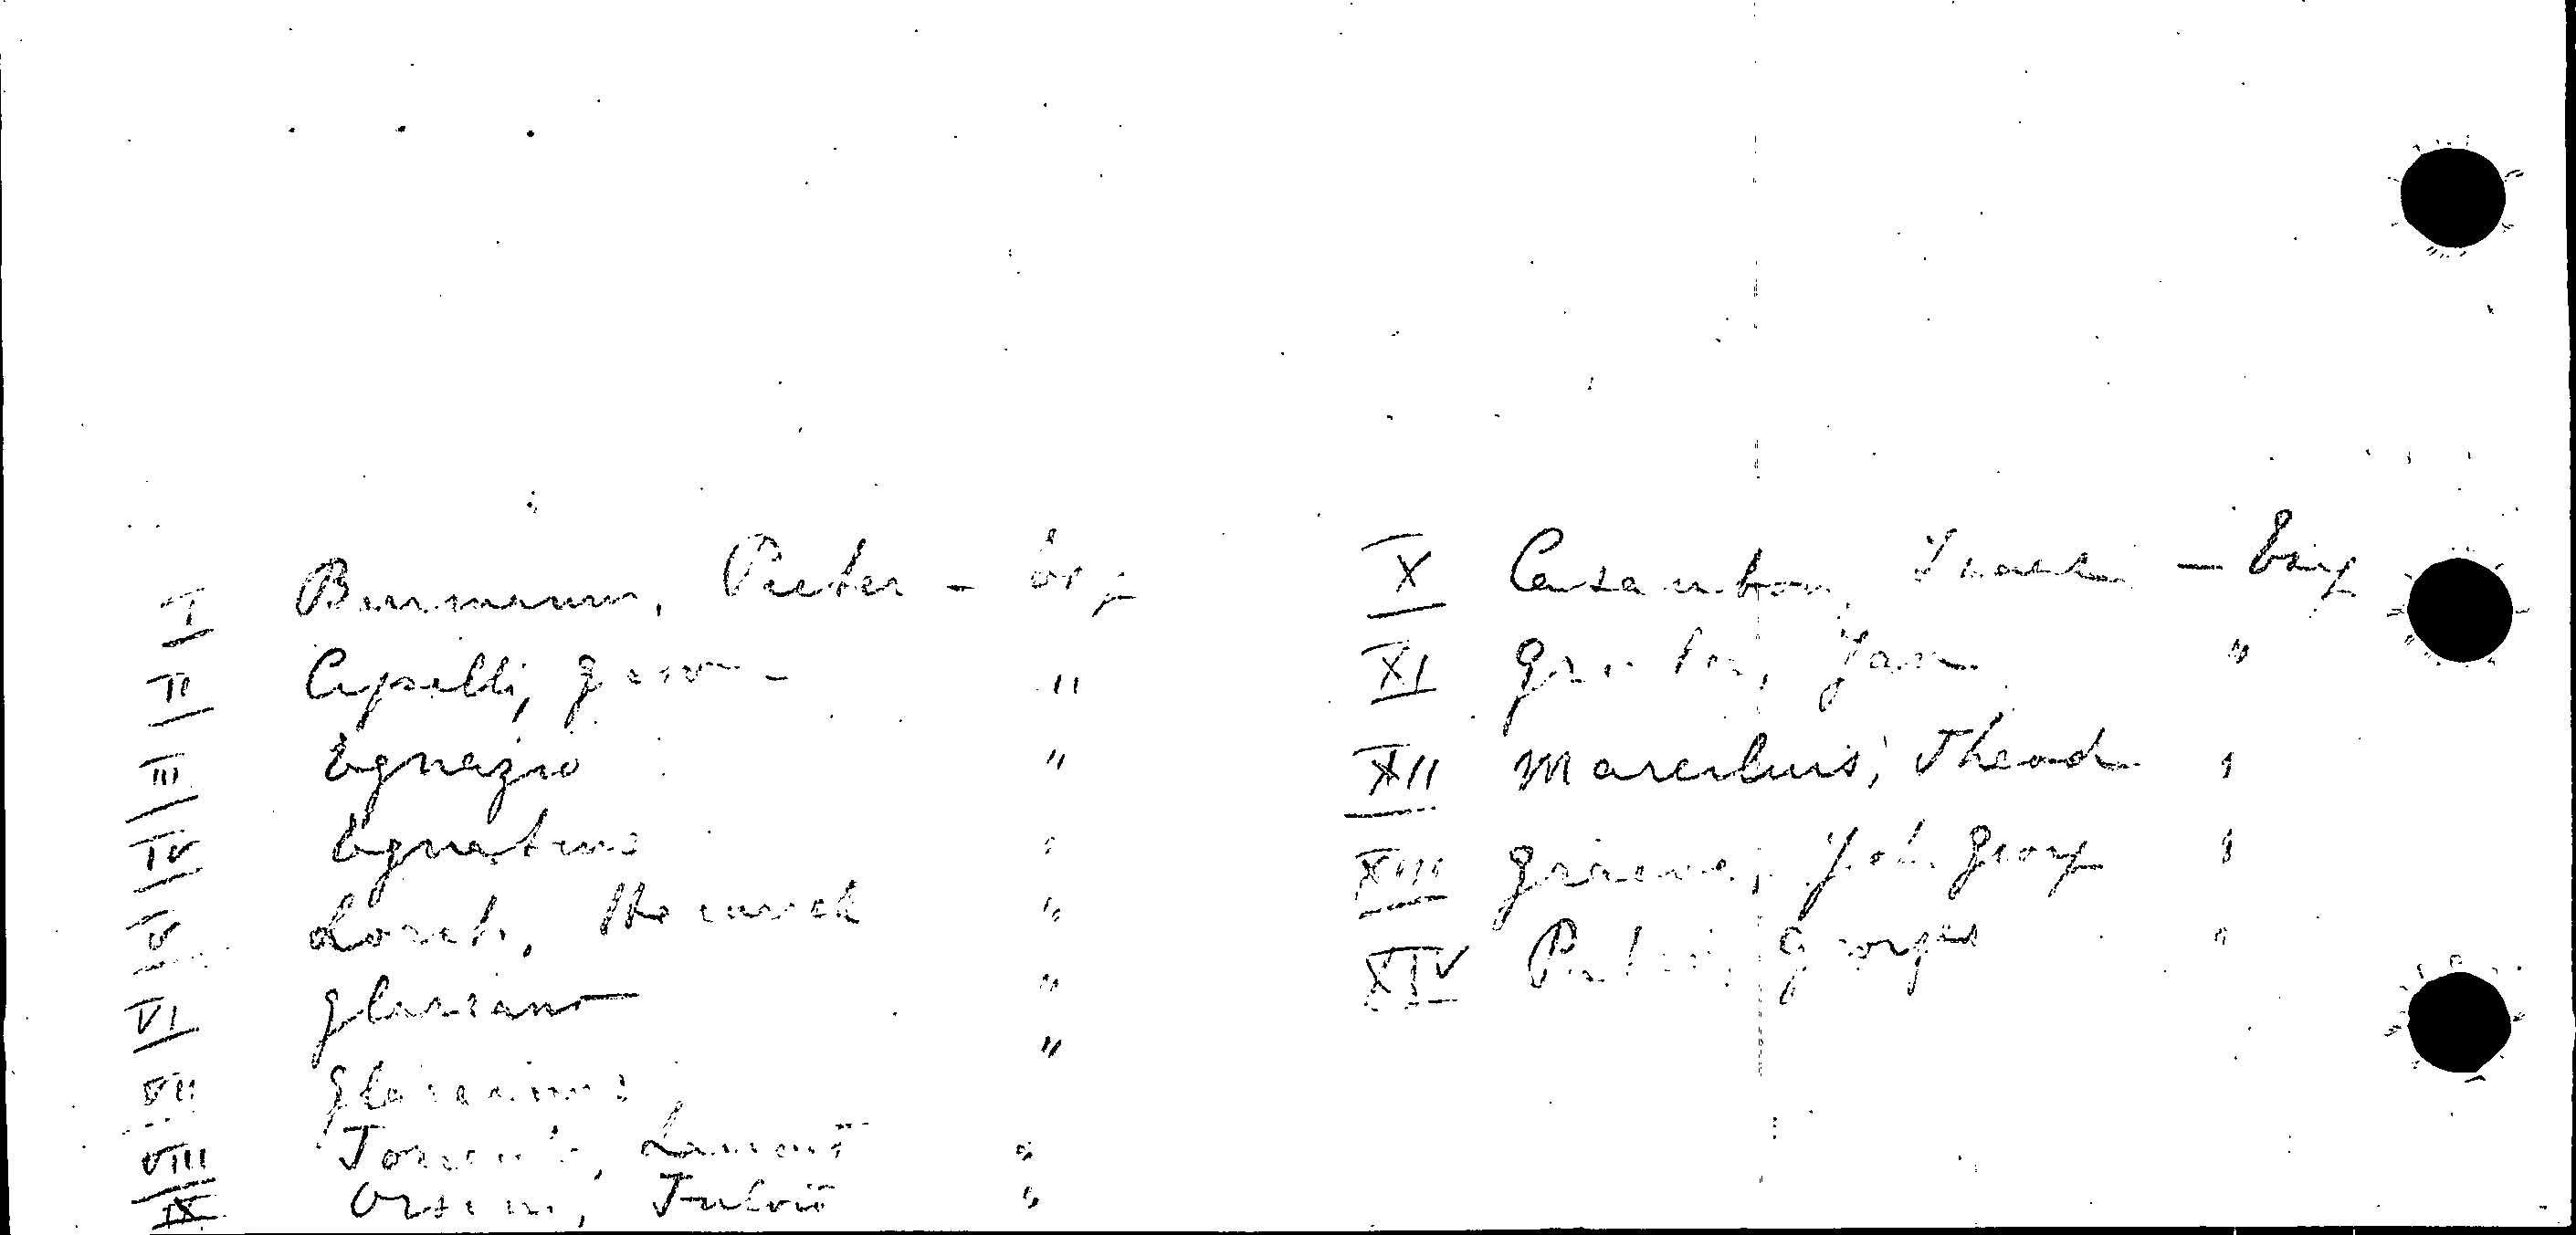 I Burmann, Pieter - erg
II Capelli, "
III Egnazio "
IV Egnatius "
V Lorit, Heinrich "
VI Glareano "
VII Glareanus "
VIII Torrent, Laurent "
IX Orsini, Fulvio "
X Casaubon, Isaac - Erg
XI Gruter, Jan "
XII Marcilius, Theod "
XIII Graeve, Joh. Georg "
XIV Georges "